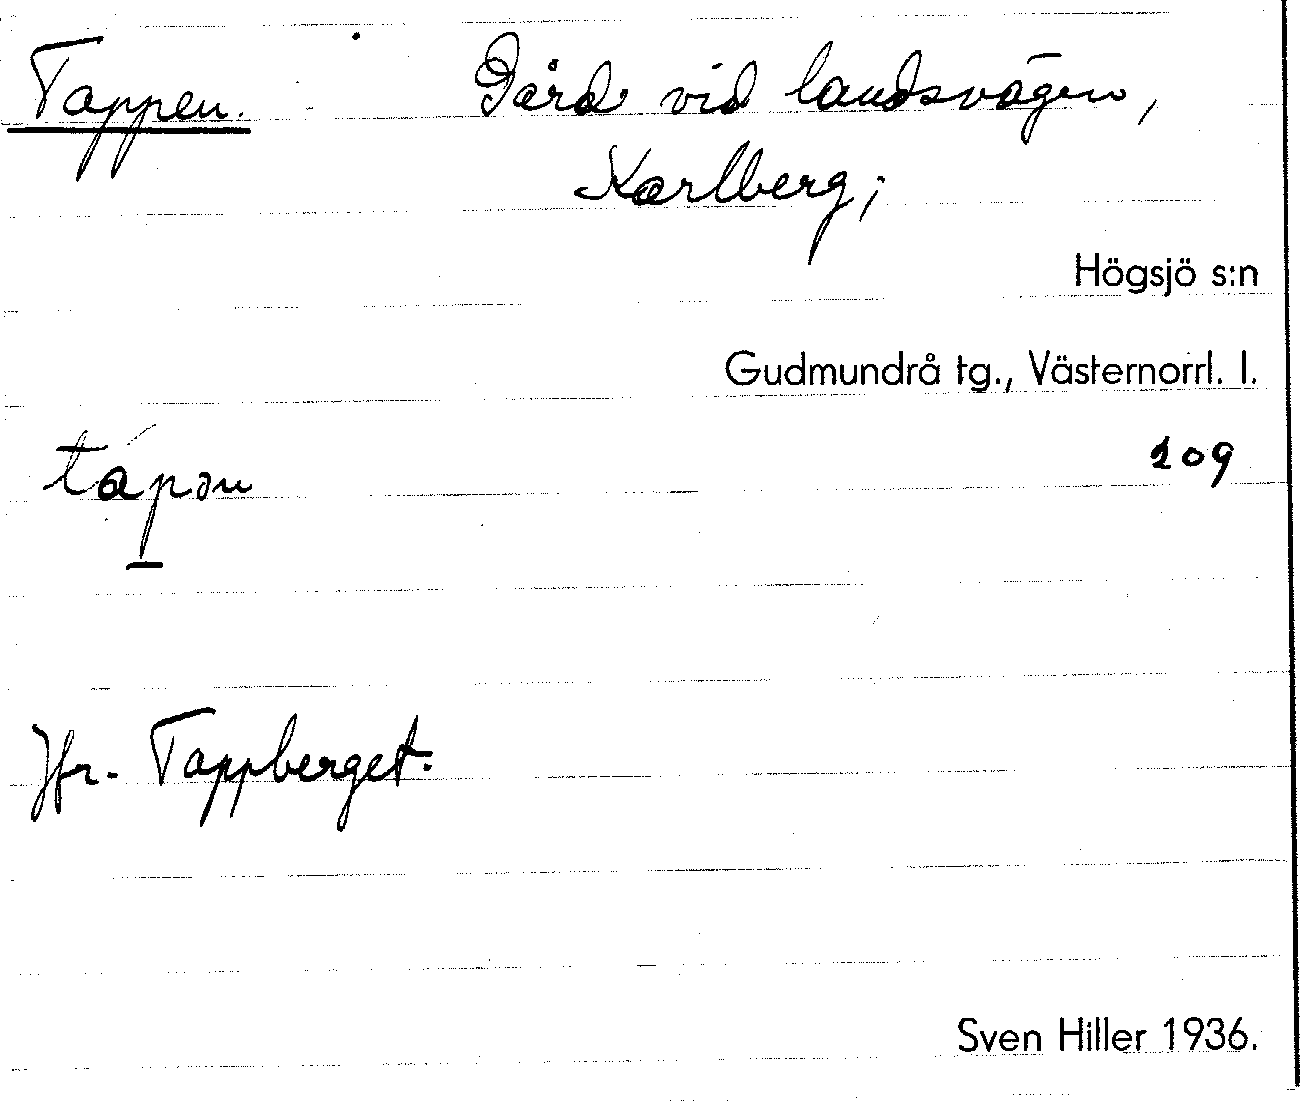 Tappen. Gård vid landsvägen,
Karlberg;
Högsjö s:n
Gudmundrå tg., Västernorrl. l.
tápən
209
Jfr. Tappberget.
Sven Hiller 1936.